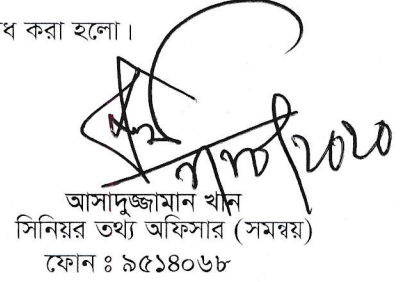 ধ করা হলো।
আসাদুজ্জামান খান
সিনিয়র তথ্য অফিসার (সমন্বয়)
ফোন ঃ ৯৫১৪০৬৮